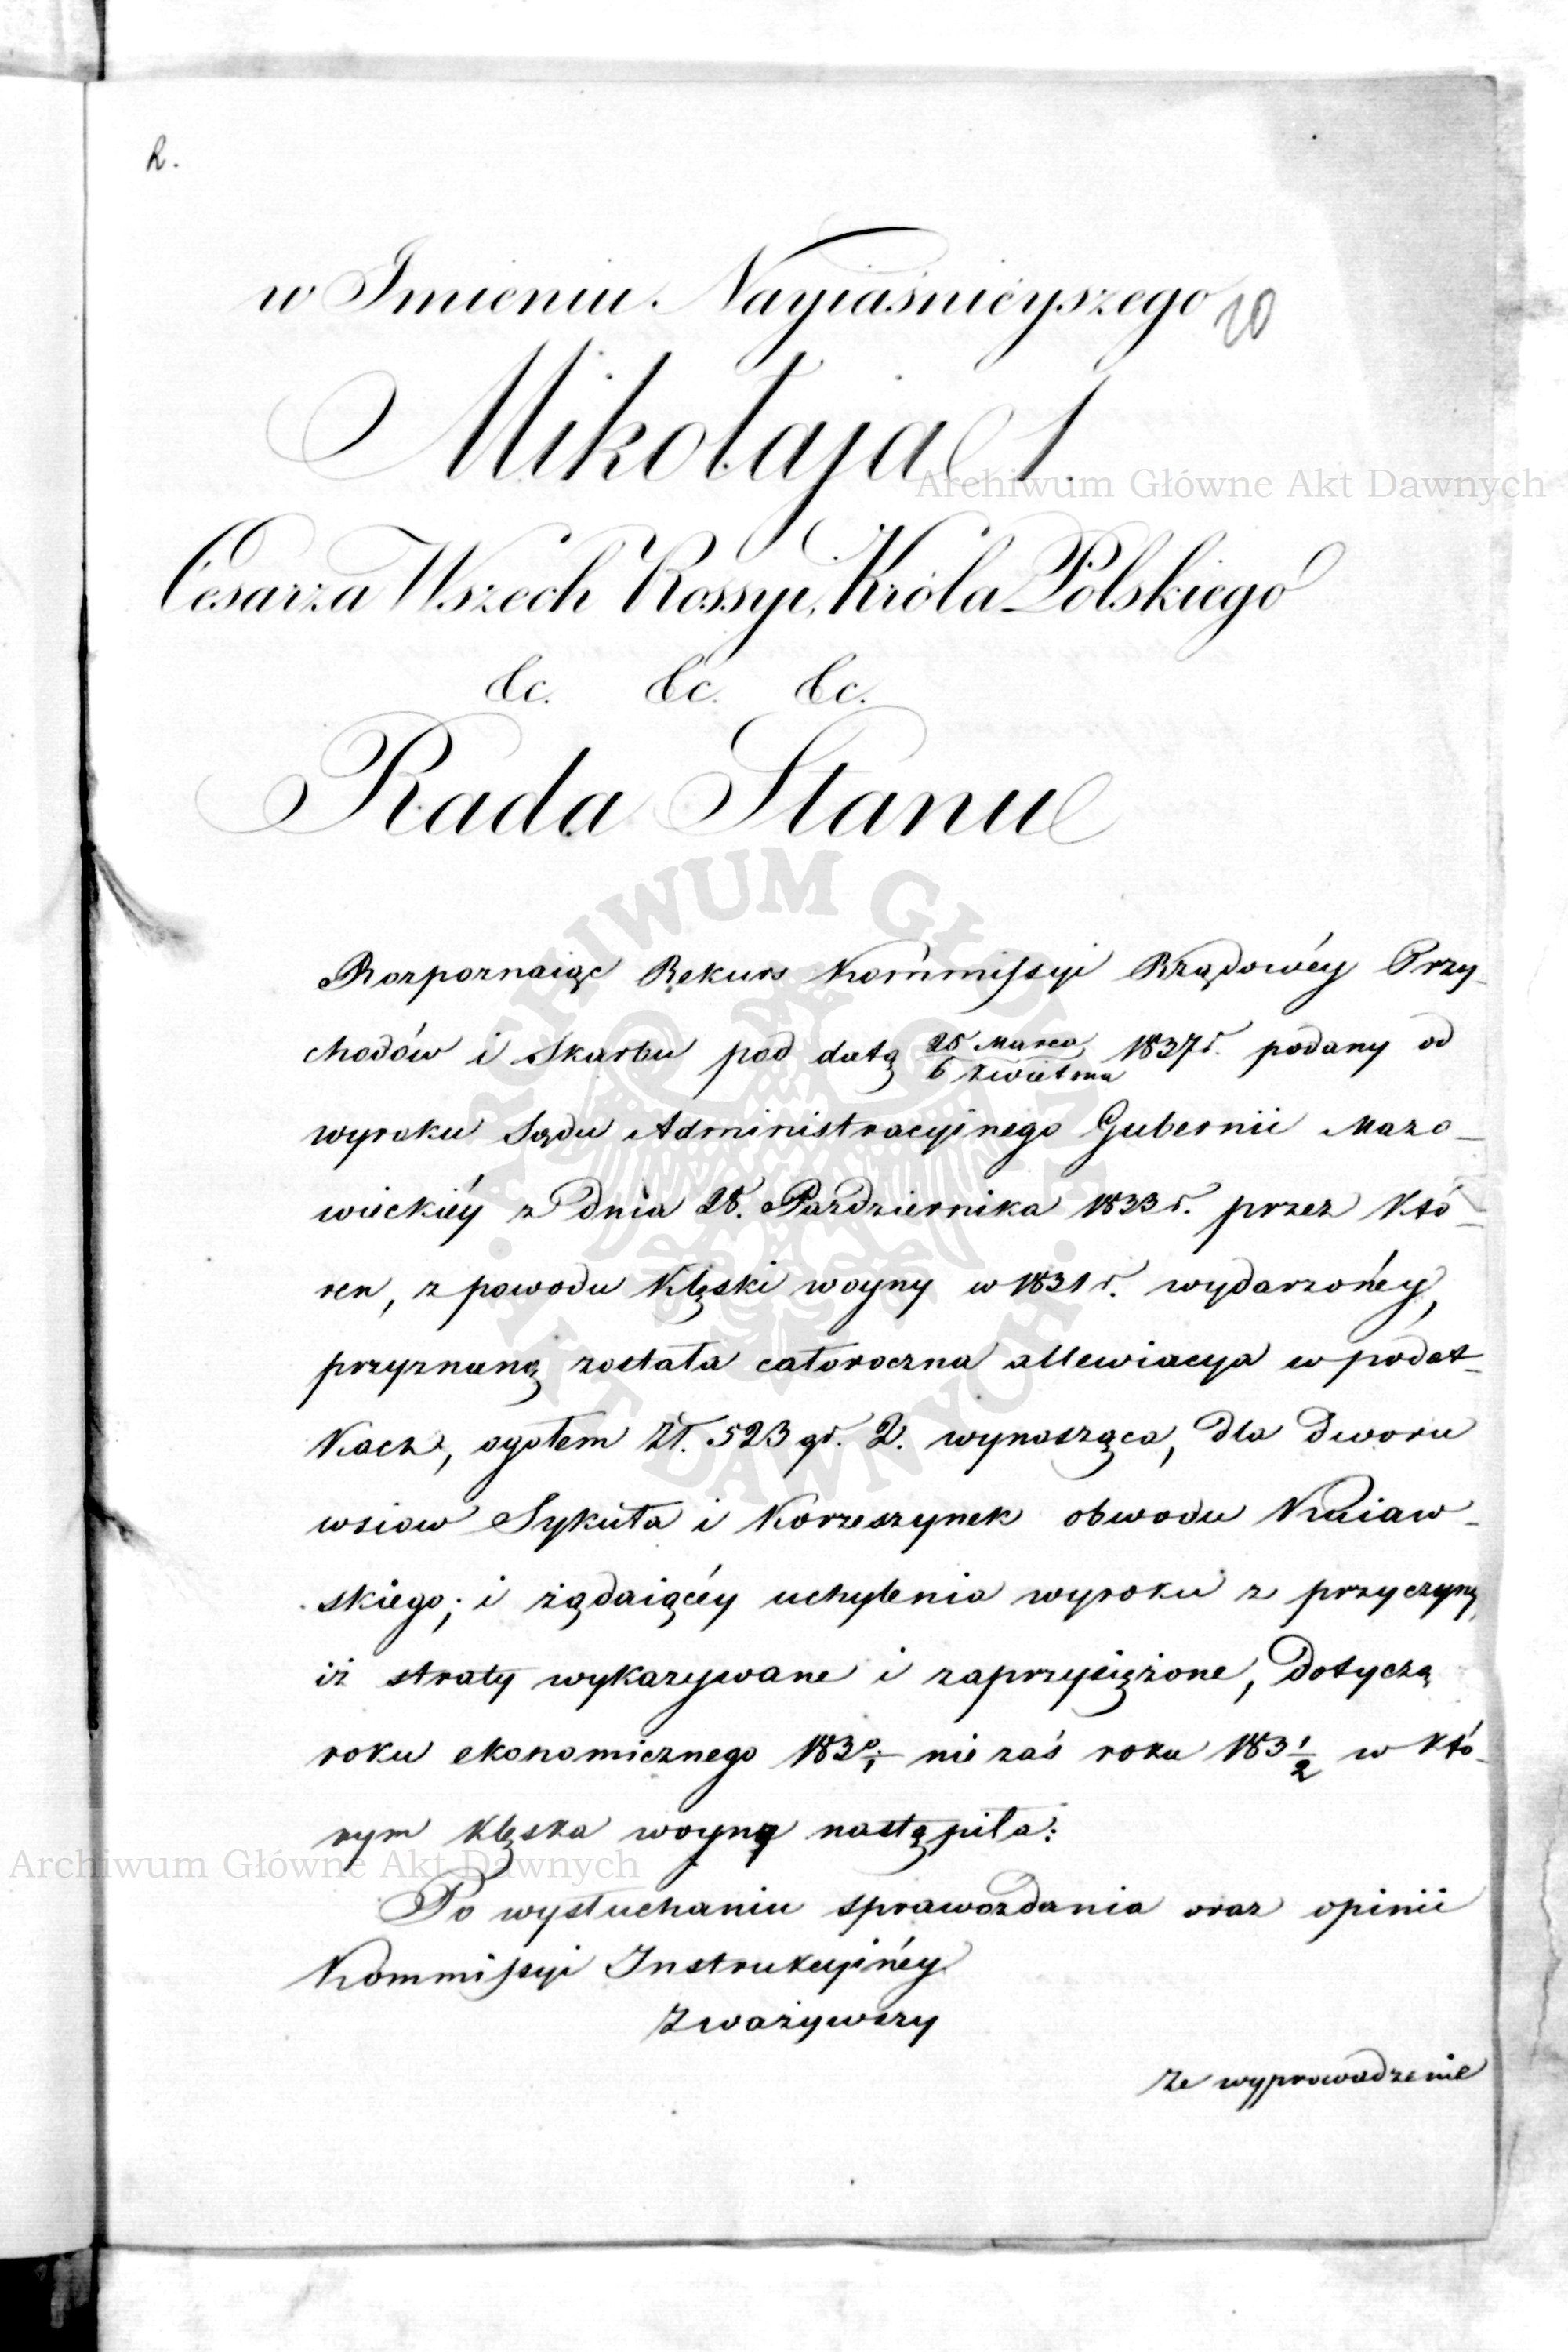 2.
w Imieniu Nayiaśnieyszego
20
Mikołaja I.
Cesarza Wszech Rossyi, Króla Polskiego
&c. &c. &c.
Rada Stanu
Rozpoznaiąc Rekurs Kommissyi Rządowéy Przy-
chodów i Skarbu pod datą 25 Marca / 6 Kwietnia 1837 r. podany od
wyroku Sądu Administracyinego Gubernii Mazo-
wieckiéy z dnia 28. Października 1833 r. przez Któ-
ren, z powodu Klęski woyny w 1831 r. wydarzonéy,
przyznaną została całoroczna allewiacya w podat-
Kach, ogółem Zł. 523 gr. 2. wynosząca, dla Dworu
wsiow Sykuła i Korzeszynek obwodu Kuiaw-
skiego; i żądaiącéy uchylenia wyroku z przyczyny,
iż straty wykazywane i zaprzysiężone, Dotyczą
roku ekonomicznego 1830/1 nie zaś roku 1831/2 w Któ-
rym Klęska woyny nastąpiła:
Po wysłuchaniu sprawozdania oraz opinii
Kommissyi Instrukcyinéy
Zważywszy
że wyprowadzenie
Archiwum Główne Akt Dawnych
ARCHIWUM GŁÓWNE
AKT DAWNYCH
Archiwum Główne Akt Dawnych